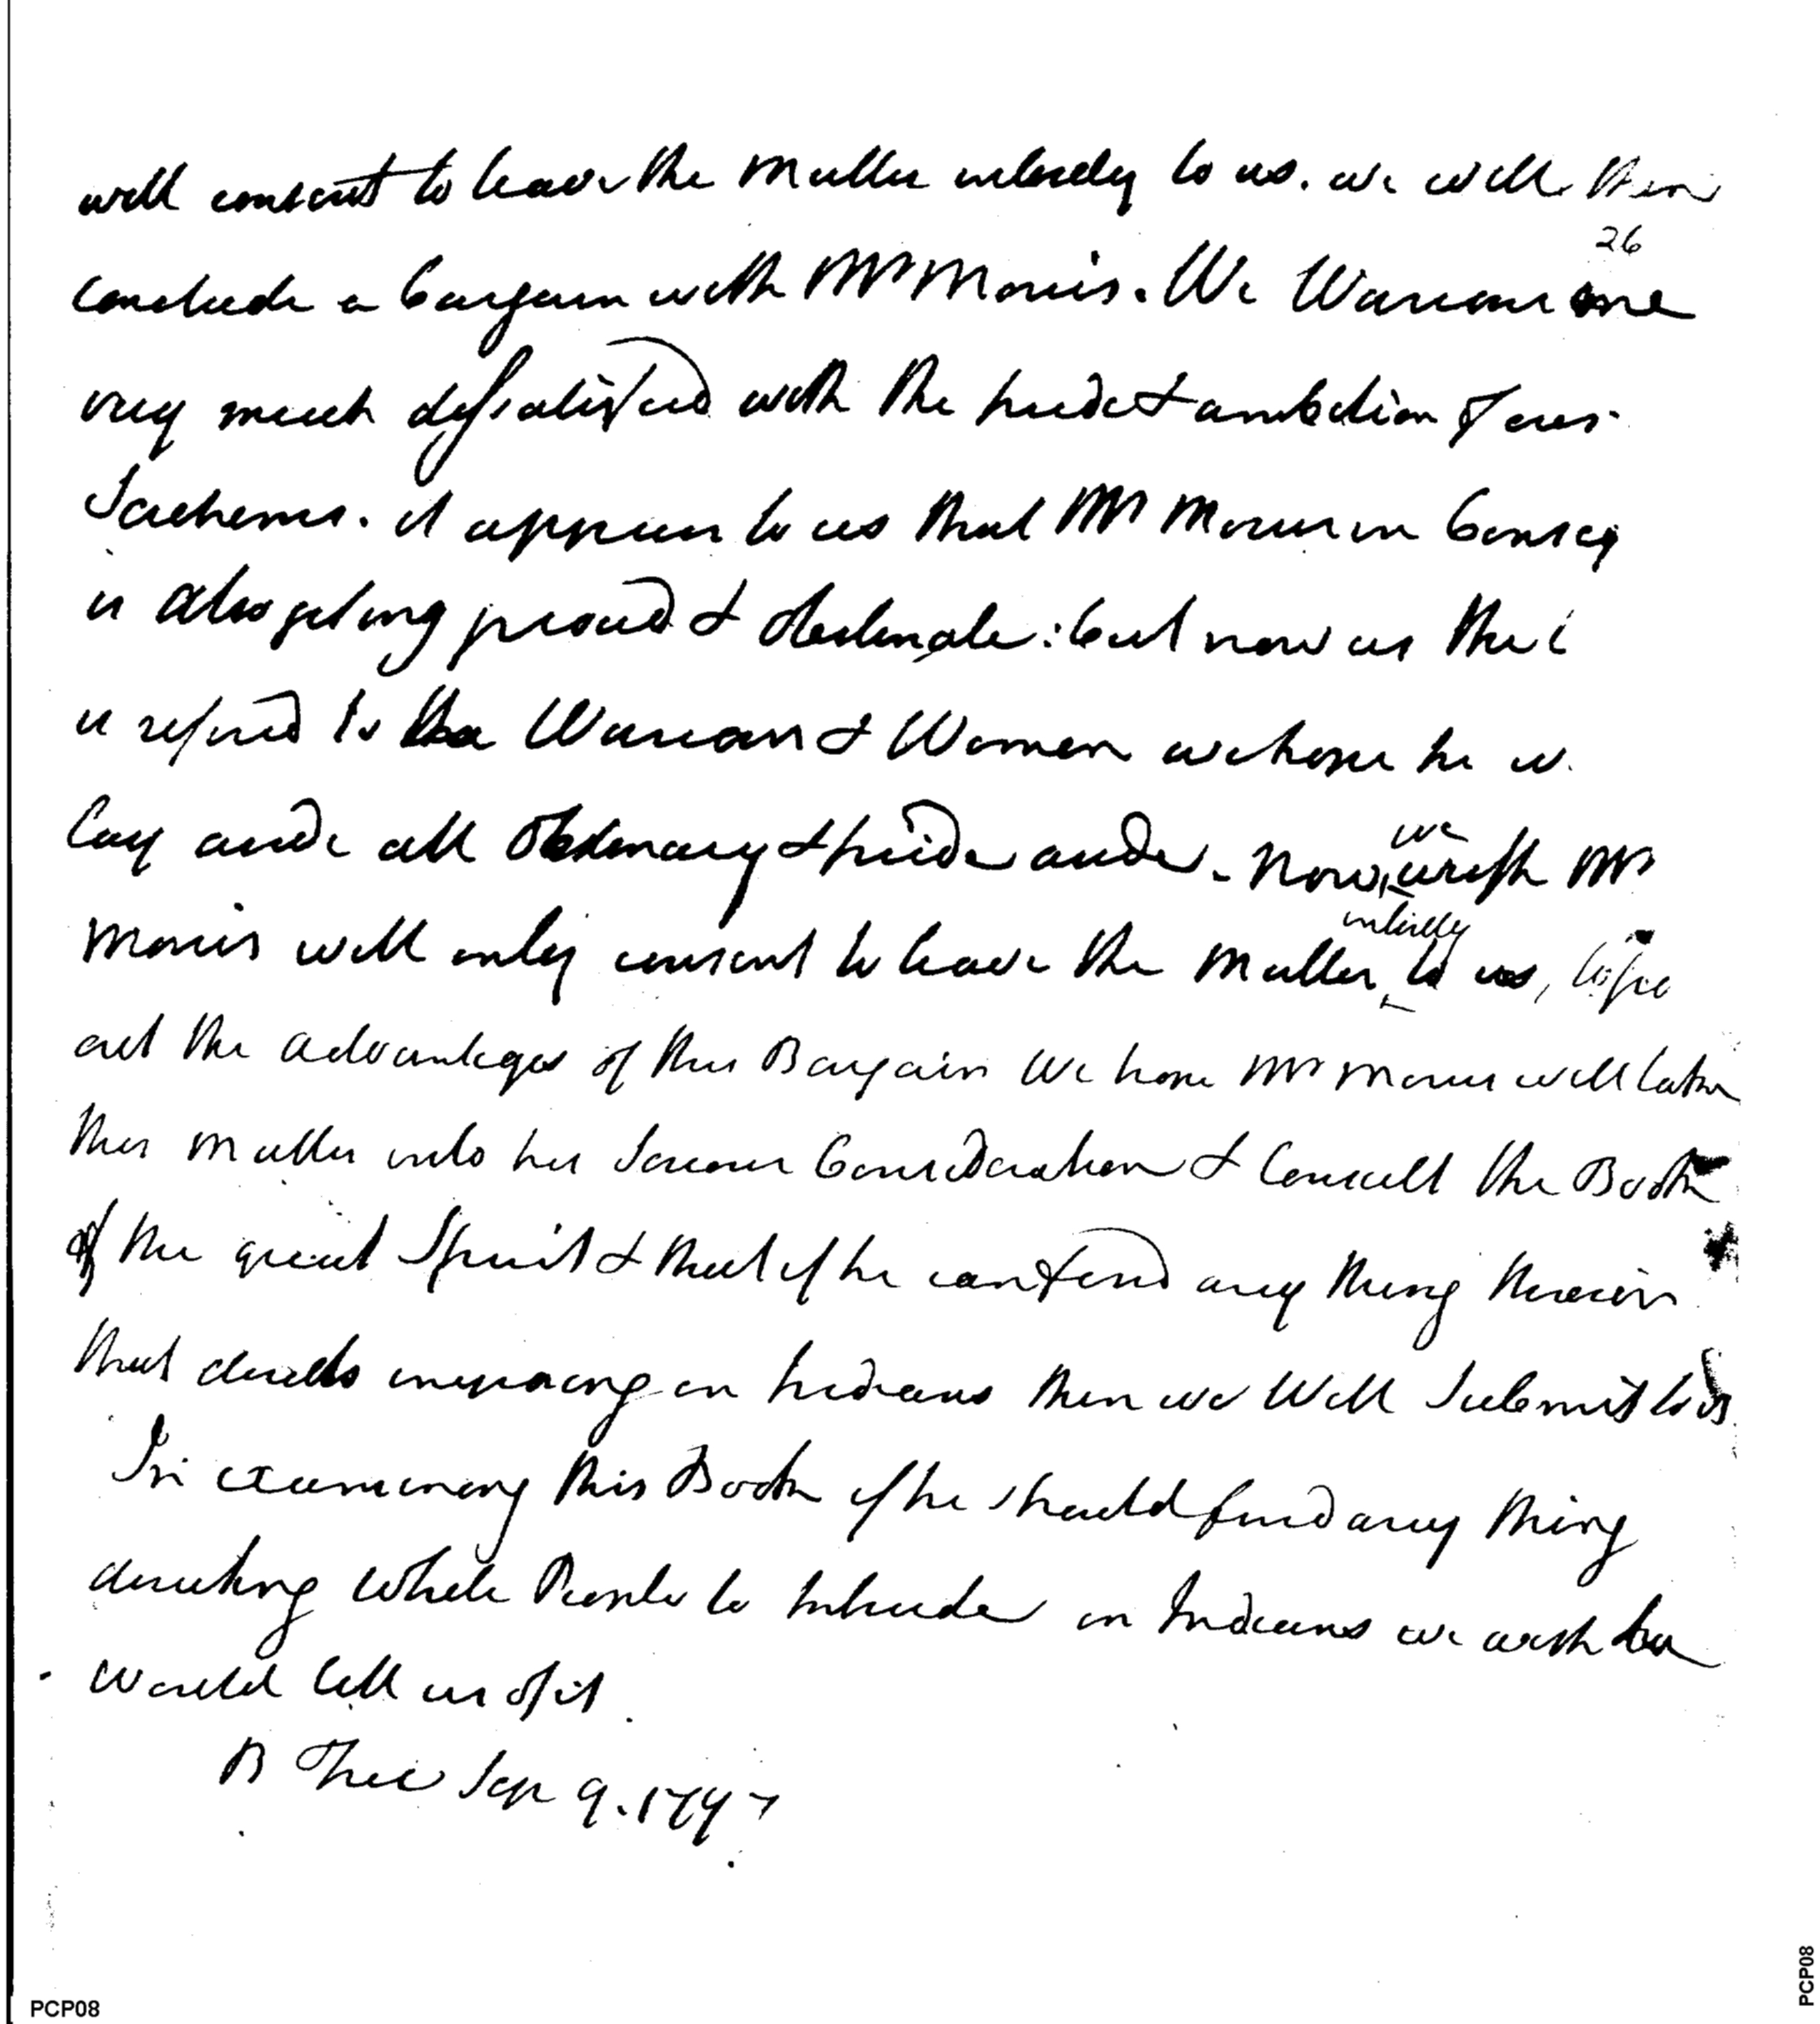 will consent to leave the Matter entirely to us. we will then
26
conclude a Bargain with Mr Morris. We Warriors are
very much dissatisfied with the pride & ambition of our
Sachems. it appears to us that Mr Morris in Conseq
is also getting proud & obstinate: but now as the
is refered to the Warriors & Women we hope he w
lay aside all Obstinacy & pride aside. Now, we wish Mr
Morris will only consent to leave the Matter entirely to us,
all the advantages of this Bargain We hope Mr Morris will take
this Matter into his Serious Consideration & Consult the Book
of the great Spirit & that if he can find any thing therein
that directs imposing on Indians then we Will Submit to it
In examining this Book if he should find any thing
directing White People to Intrude on Indians we wish he
would tell us of it.
B Tree Sep 9. 1797
PCP08
PCP08